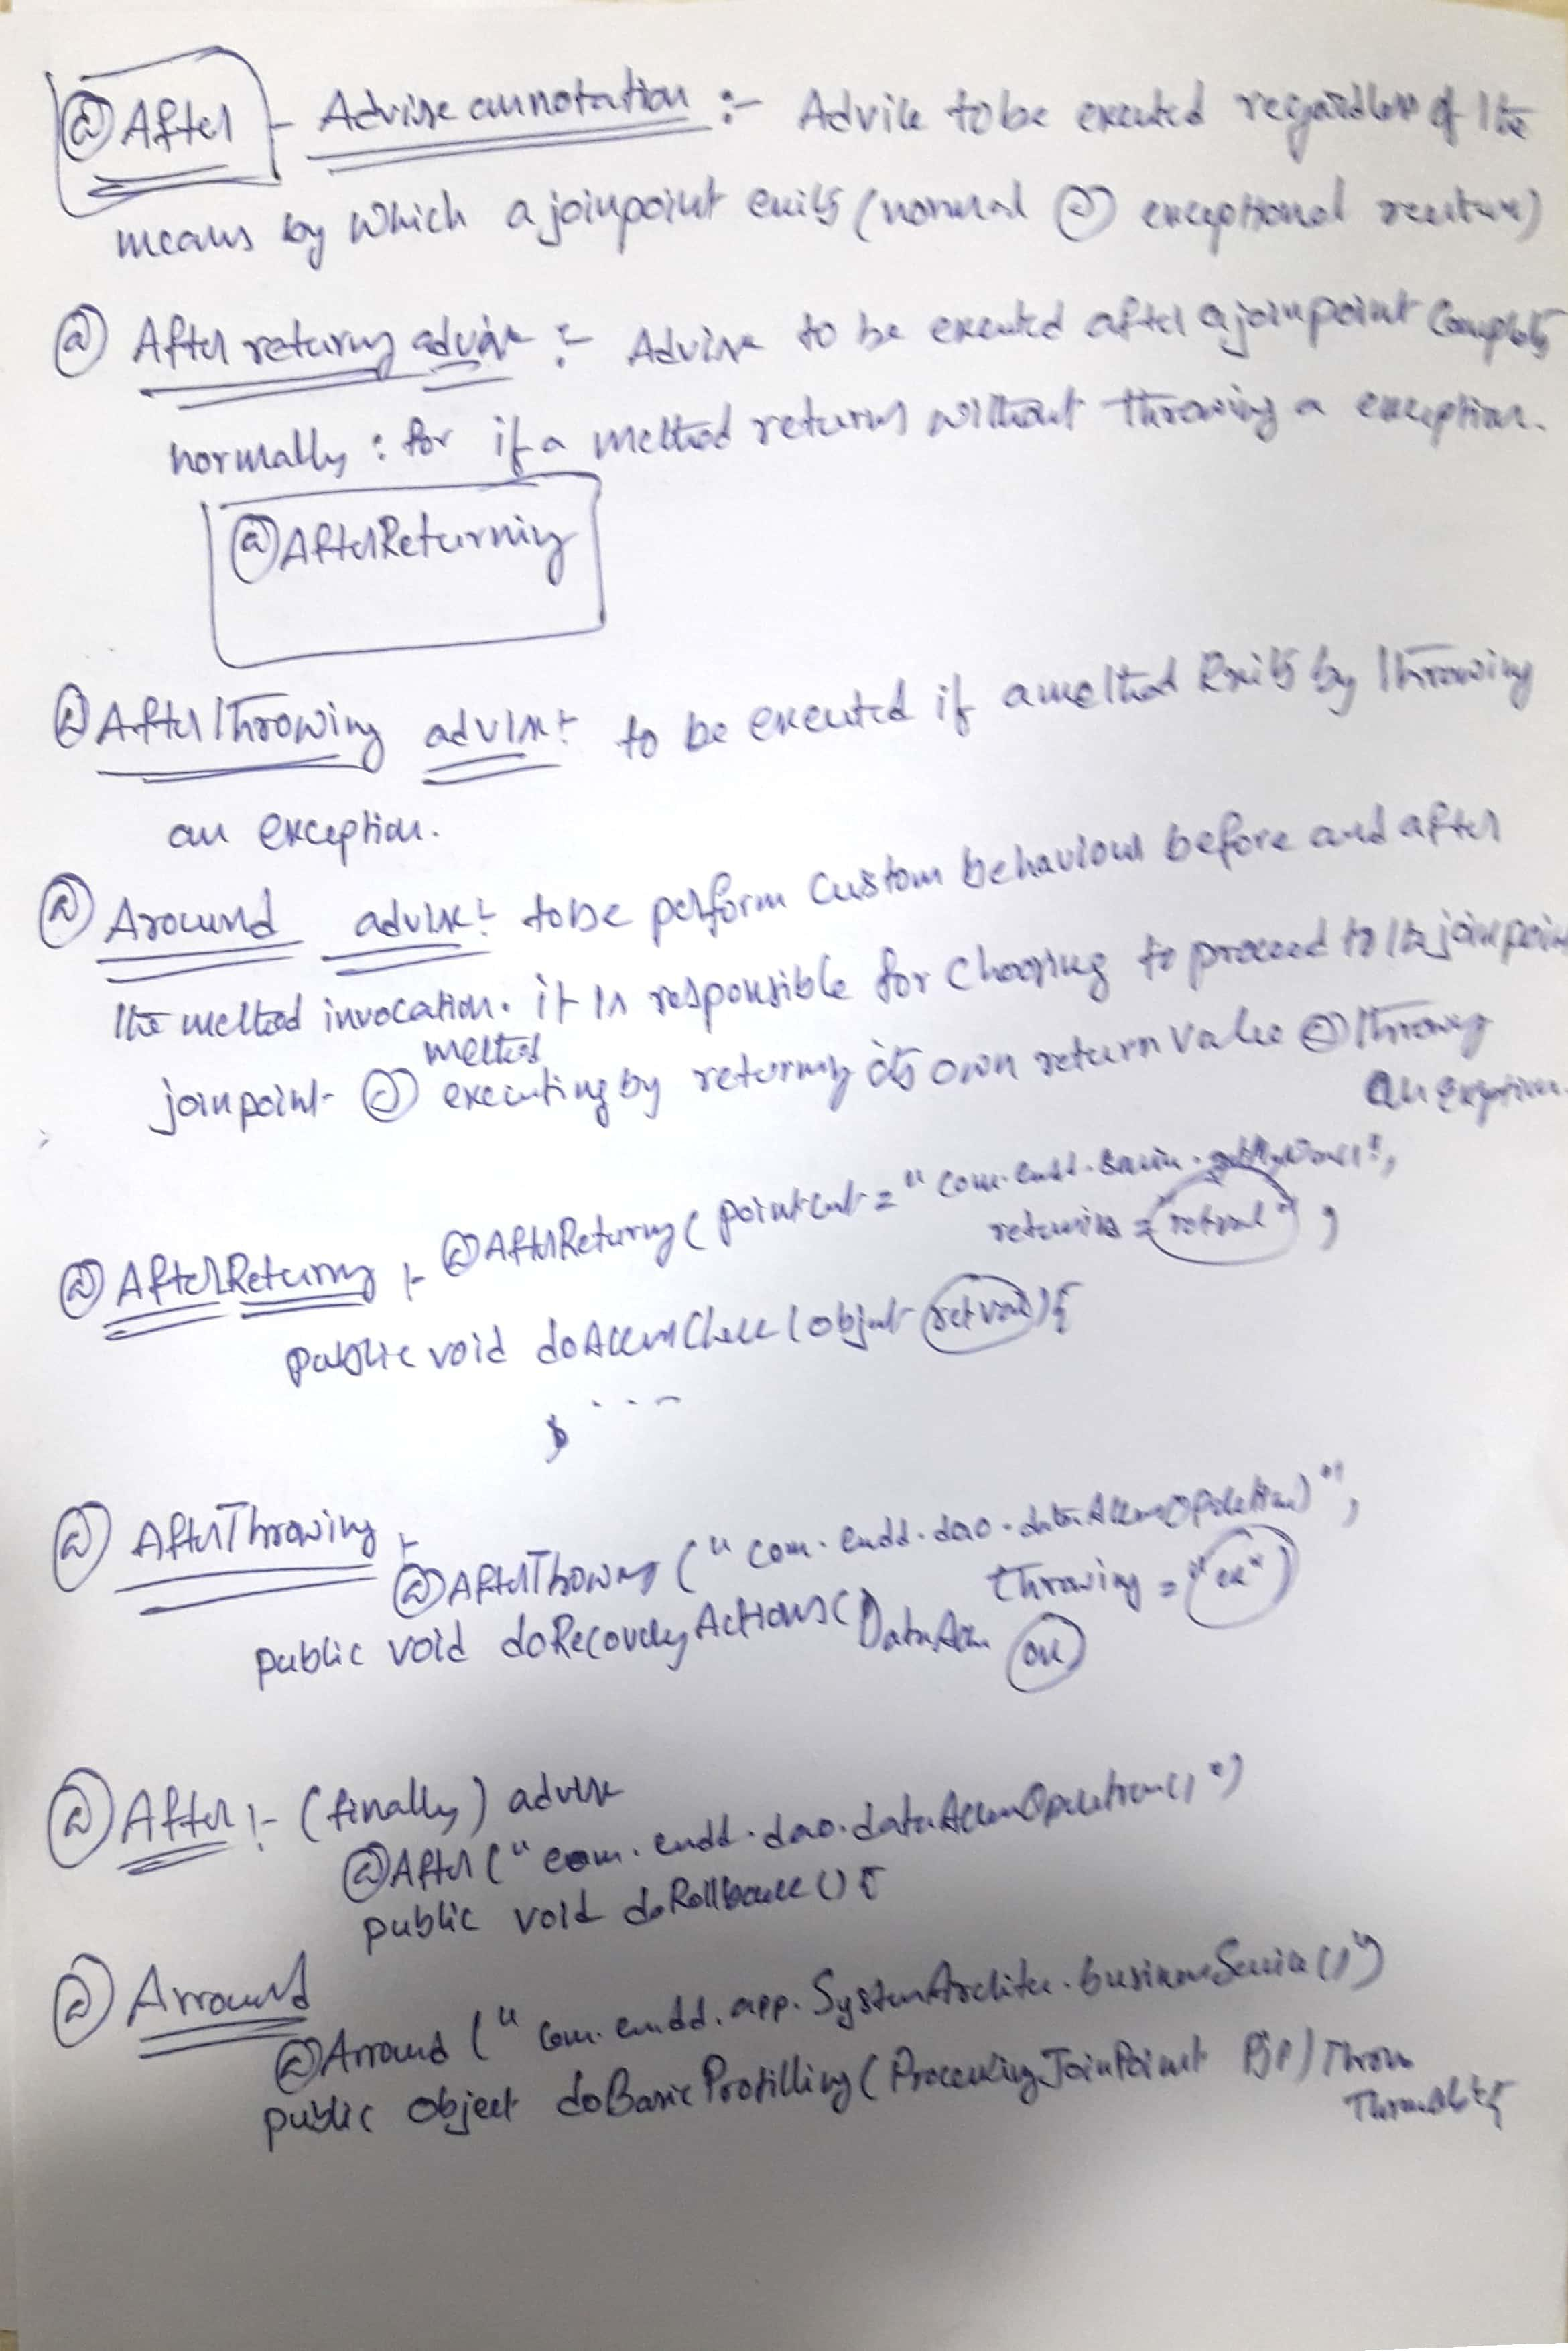 @After - Advise annotation :- Advice to be executed regardless of the
means by which a joinpoint exits (normal @ exceptional
@ After returing advise :- Advise to be executed after a joinpoint Complets
normally : for if a method returns without throwing a exception.
@AfterReturning
@AfterThrowing advise :- to be executed if a method Exits by Throwing
an exception.
@ Around advise :- to be perform custom behaviour before and after
the method invocation. it is responsible for choosing to proceed to the joinpoint
method
joinpoint @ executing by returning its own return value @ throwing
an exception.
@AfterReturing (pointcut = "com.
returing = "retval" ,
@ AfterReturing :-
public void doAccessCheck (object retval) {
. . . -
}
@ AfterThrowing :-
@AfterThrowing ("com.endd.dao.dataAccessOperation)",
throwing = "ex")
public void doRecoveryActions (DataAccess ex
@ After :- (finally) advise
@After ("com.endd.dao.dataAccessOperation()")
public void doRollback () {
@ Arround
@Arround ("com.endd.app.SystemArchite.businessService()")
public Object doBasicProfilling (ProceedingJoinPoint pjp) Throws
Throwable {